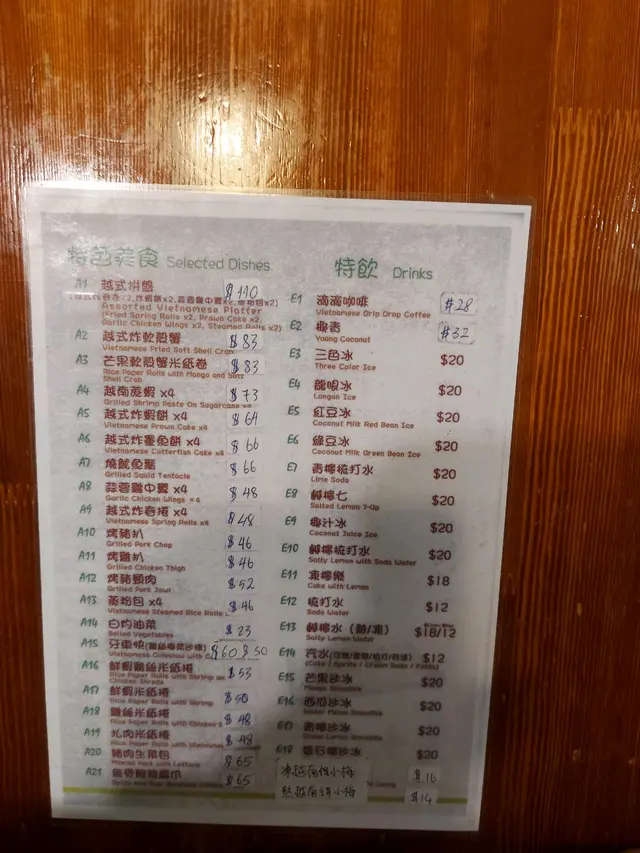 特色美食 Selected Dishes
A1 越式拼盤 $110
Assorted Vietnamese Platter
(Fried Spring Rolls x2, Prawn Cake x2,
Garlic Chicken Wings x2, Steamed Rolls x2)
A2 越式炸軟殼蟹 $83
Vietnamese Fried Soft Shell Crab
A3 芒果軟殼蟹米紙卷 $83
Rice Paper Rolls with Mango and Soft
Shell Crab
A4 越南蔗蝦 x4 $73
Grilled Shrimp Paste On Sugarcane x4
A5 越式炸蝦餅 x4 $64
Vietnamese Prawn Cake x4
A6 越式炸墨魚餅 x4 $66
Vietnamese Cutterfish Cake x4
A7 燒魷魚鬚 $66
Grilled Squid Tentacle
A8 蒜蓉雞中翼 x4 $48
Garlic Chicken Wings x4
A9 越式炸春捲 x4 $48
Vietnamese Spring Rolls x4
A10 烤豬扒 $46
Grilled Pork Chop
A11 烤雞扒 $46
Grilled Chicken Thigh
A12 烤豬頸肉 $52
Grilled Pork Jowl
A13 蒸粉包 x4 $46
Vietnamese Steamed Rice Rolls
A14 白灼油菜 $23
Boiled Vegetables
A15 $60 $50
A16 鮮蝦雞絲米紙捲 $53
Rice Paper Rolls with Shrimp
Chicken Shreds
A17 鮮蝦米紙捲 $50
Rice Paper Rolls with Shrimp
A18 雞絲米紙捲 $48
Rice Paper Rolls with Chicken
A19 扎肉米紙捲 $48
Rice Paper Rolls with Vietnamese
A20 豬肉生菜包 $65
Minced Pork with Lettuce
A21 $65
特飲 Drinks
E1 滴滴咖啡 $28
Vietnamese Drip Drop Coffee
E2 椰青 $32
Young Coconut
E3 三色冰 $20
Three Color Ice
E4 龍眼冰 $20
Longan Ice
E5 紅豆冰 $20
Coconut Milk Red Bean Ice
E6 綠豆冰 $20
Coconut Milk Green Bean Ice
E7 青檸梳打水 $20
Lime Soda
E8 鹹檸七 $20
Salted Lemon 7-Up
E9 椰汁冰 $20
Coconut Juice Ice
E10 鹹檸梳打水 $20
Salty Lemon with Soda Water
E11 凍檸樂 $18
Coke with Lemon
E12 梳打水 $12
Soda Water
E13 鹹檸水 (熱/凍) $18/12
Salty Lemon Water
E14 汽水 $12
E15 芒果沙冰 $20
Mango Smoothie
E16 西瓜沙冰 $20
Water Melon Smoothie
E17 青檸沙冰 $20
Green Lemon Smoothie
E18 $20
$16
$14